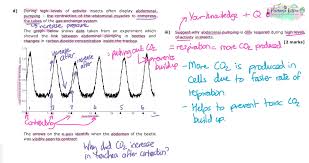 d) During high levels of activity insects often display abdominal
pumping - the contraction of the abdominal muscles to compress
of the gas exchange system.
The graph below shows data taken from an experiment which
showed the link between abdominal pumping in beetles and
changes in carbon dioxide concentration inside the trachea
increase before
increase after
pushing out CO2
prevents
build up
contracting
The arrows on the x-axis identify when the abdomen of the beetle
was visibly seen to contract
Why did CO2 increase
in trachea after contraction?
Your knowledge + Q
Suggest why abdominal pumping is only required during high levels
of activity in insects
[2 marks]
= respiration = more CO2 produced
- More CO2 is produced in
cells due to faster rate of
respiration
- Helps to prevent toxic CO2
build up.